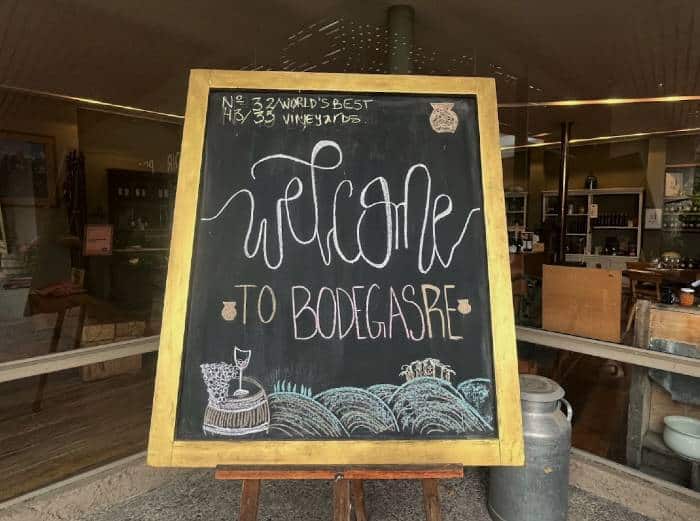 Nº 32 WORLD'S BEST
43/33 VINEYARDS.
welcome
TO BODEGAS RE